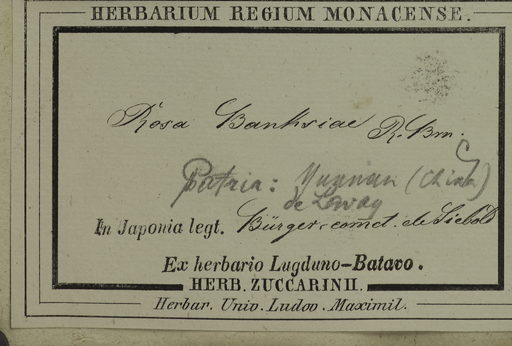 HERBARIUM REGIUM MONACENSE.
Rosa Banksiae R. Brn.
Patria: Yunnan (China)
de Lavay
In Japonia legt. Bürger, comet. de Siebold
Ex herbario Lugduno-Batavo.
HERB. ZUCCARINII.
Herbar. Univ. Ludov. Maximil.